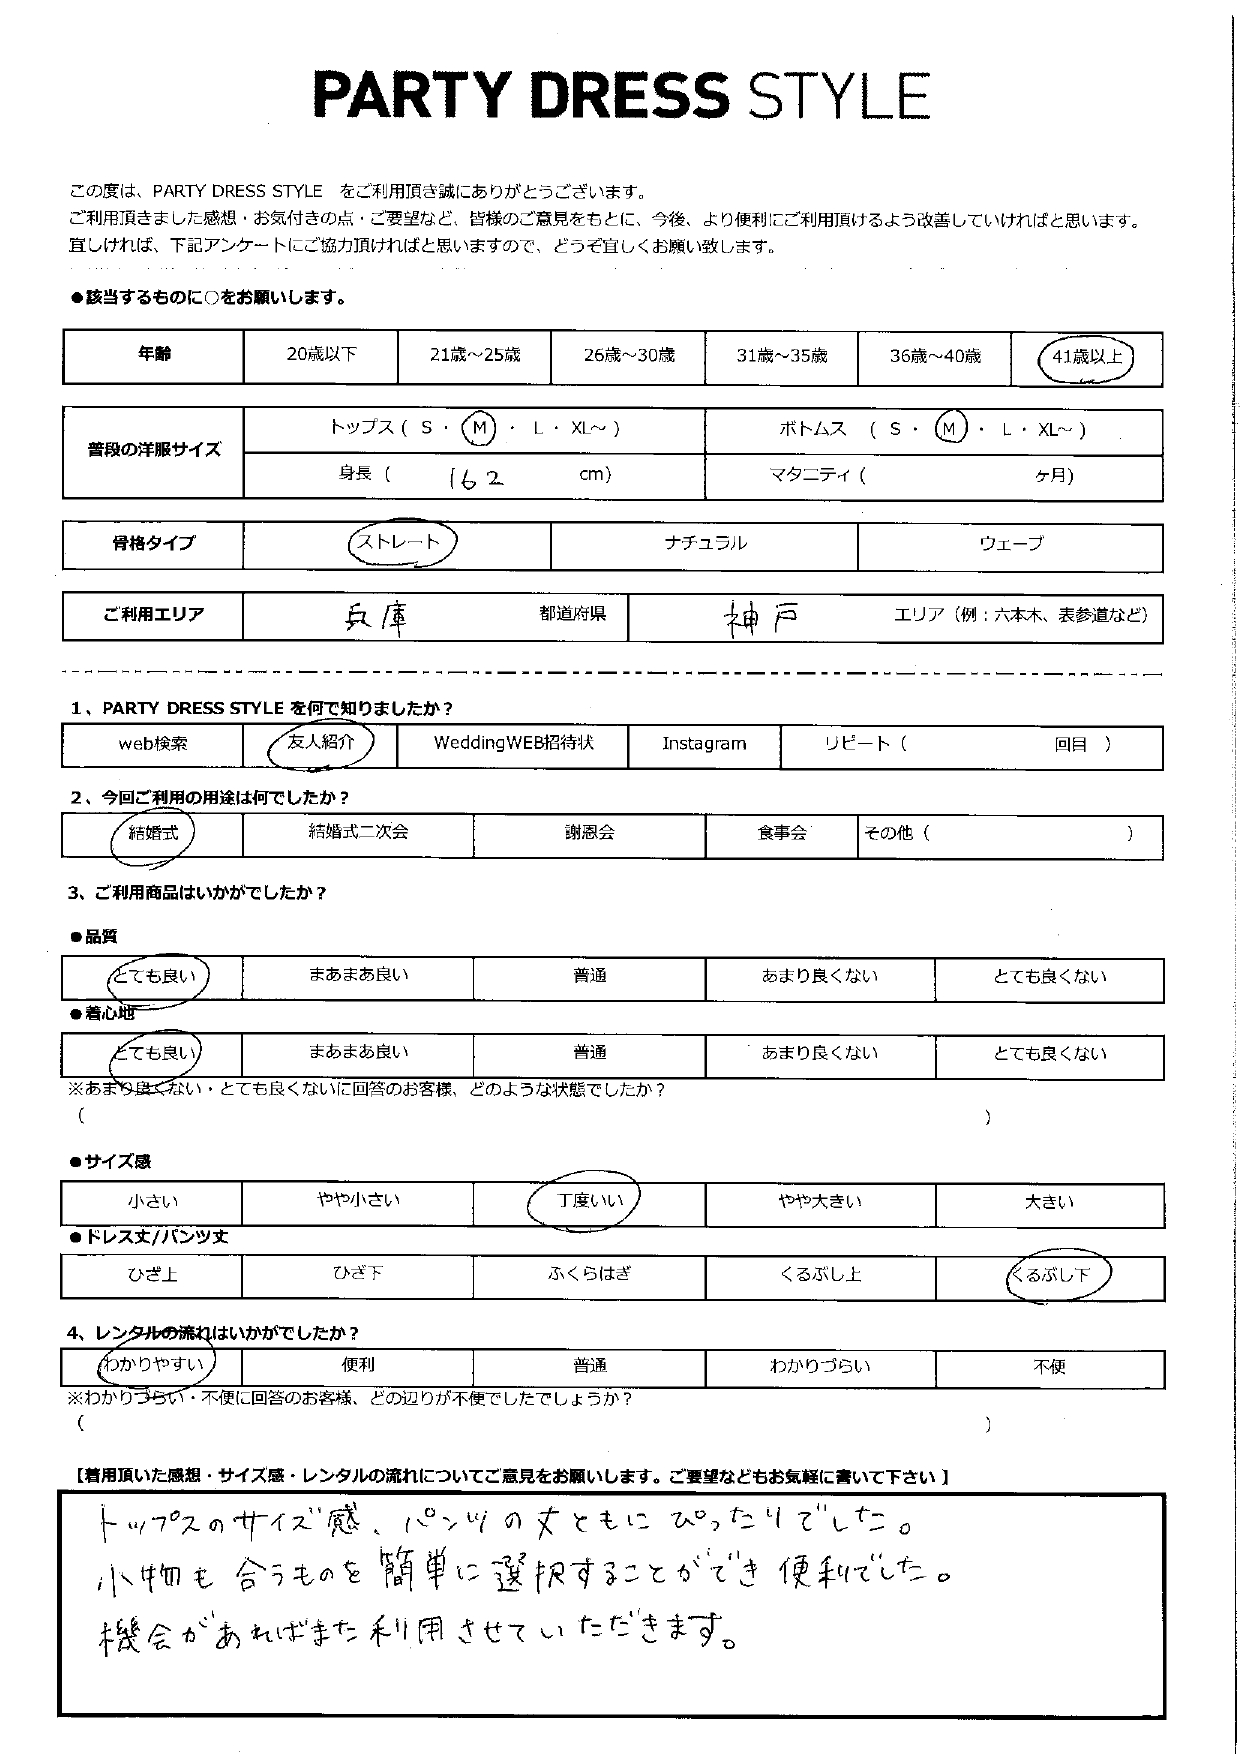 PARTY DRESS STYLE
この度は、PARTY DRESS STYLE をご利用頂き誠にありがとうございます。
ご利用頂きました感想・お気付きの点・ご要望など、皆様のご意見をもとに、今後、より便利にご利用頂けるよう改善していければと思います。
宜しければ、下記アンケートにご協力頂ければと思いますので、どうぞ宜しくお願い致します。
●該当するものに○をお願いします。
年齢 20歳以下 21歳～25歳 26歳～30歳 31歳～35歳 36歳～40歳 41歳以上
普段の洋服サイズ
トップス ( S ・ M ・ L ・ XL～ ) ボトムス ( S ・ M ・ L ・ XL～ )
身長 ( 162 cm) マタニティ ( ヶ月)
骨格タイプ ストレート ナチュラル ウェーブ
ご利用エリア 兵庫 都道府県 神戸 エリア（例：六本木、表参道など）
1、PARTY DRESS STYLE を何で知りましたか？
web検索 友人紹介 WeddingWEB招待状 Instagram リピート ( 回目 )
2、今回ご利用の用途は何でしたか？
結婚式 結婚式二次会 謝恩会 食事会 その他 ( )
3、ご利用商品はいかがでしたか？
●品質
とても良い まあまあ良い 普通 あまり良くない とても良くない
●着心地
とても良い まあまあ良い 普通 あまり良くない とても良くない
※あまり良くない・とても良くないに回答のお客様、どのような状態でしたか？
( )
●サイズ感
小さい やや小さい 丁度いい やや大きい 大きい
●ドレス丈/パンツ丈
ひざ上 ひざ下 ふくらはぎ くるぶし上 くるぶし下
4、レンタルの流れはいかがでしたか？
わかりやすい 便利 普通 わかりづらい 不便
※わかりづらい・不便に回答のお客様、どの辺りが不便でしたでしょうか？
( )
【着用頂いた感想・サイズ感・レンタルの流れについてご意見をお願いします。ご要望などもお気軽に書いて下さい】
トップスのサイズ感、パンツの丈ともにぴったりでした。
小物も合うものを簡単に選択することができ便利でした。
機会があればまた利用させていただきます。